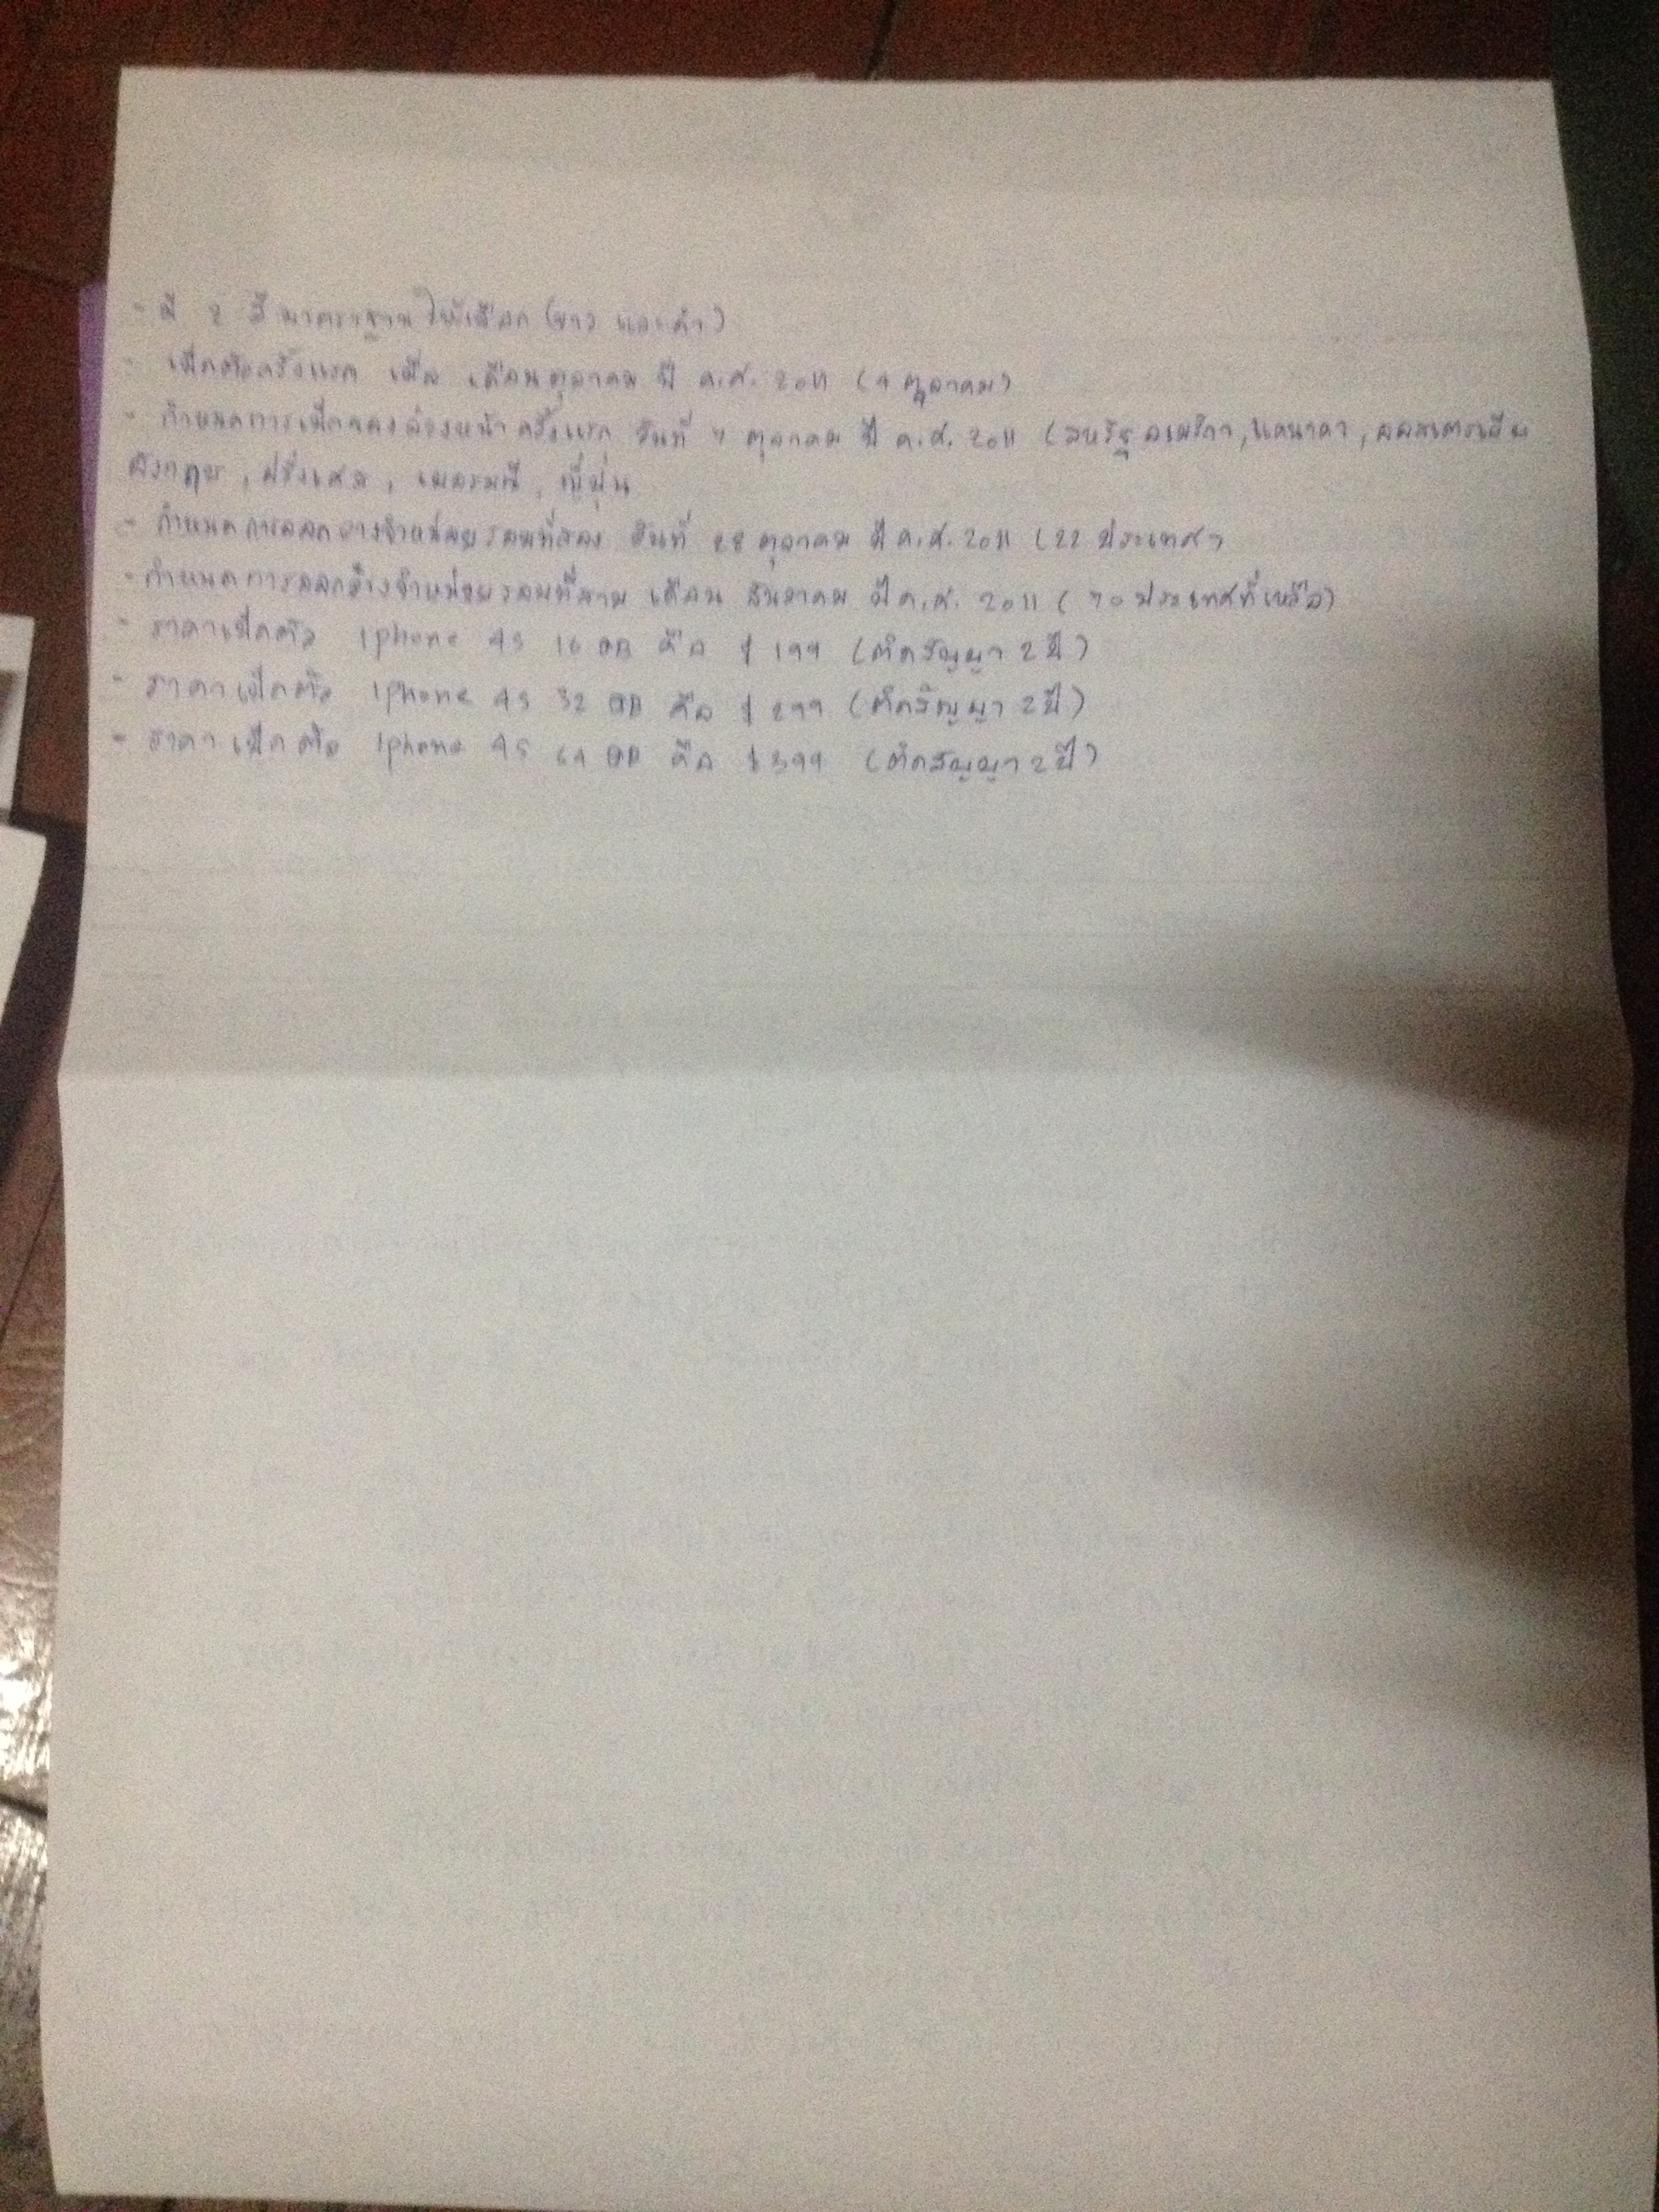 - มี 2 สีมาตรฐานให้เลือก (ขาว และดำ)
- เปิดตัวครั้งแรก เมื่อ เดือนตุลาคม ปี ค.ศ. 2011 (4 ตุลาคม)
- กำหนดการเปิดจองล่วงหน้าครั้งแรก วันที่ 7 ตุลาคม ปี ค.ศ. 2011 (สหรัฐอเมริกา, แคนาดา, ออสเตรเลีย
อังกฤษ, ฝรั่งเศส, เยอรมนี, ญี่ปุ่น
- กำหนดการออกวางจำหน่ายรอบที่สอง วันที่ 28 ตุลาคม ปี ค.ศ. 2011 (22 ประเทศ)
- กำหนดการออกวางจำหน่ายรอบที่สาม เดือน ธันวาคม ปี ค.ศ. 2011 (70 ประเทศที่เหลือ)
- ราคาเปิดตัว Iphone 4S 16 GB คือ $ 199 (ติดสัญญา 2 ปี)
- ราคาเปิดตัว Iphone 4S 32 GB คือ $ 299 (ติดสัญญา 2 ปี)
- ราคาเปิดตัว Iphone 4S 64 GB คือ $ 399 (ติดสัญญา 2 ปี)